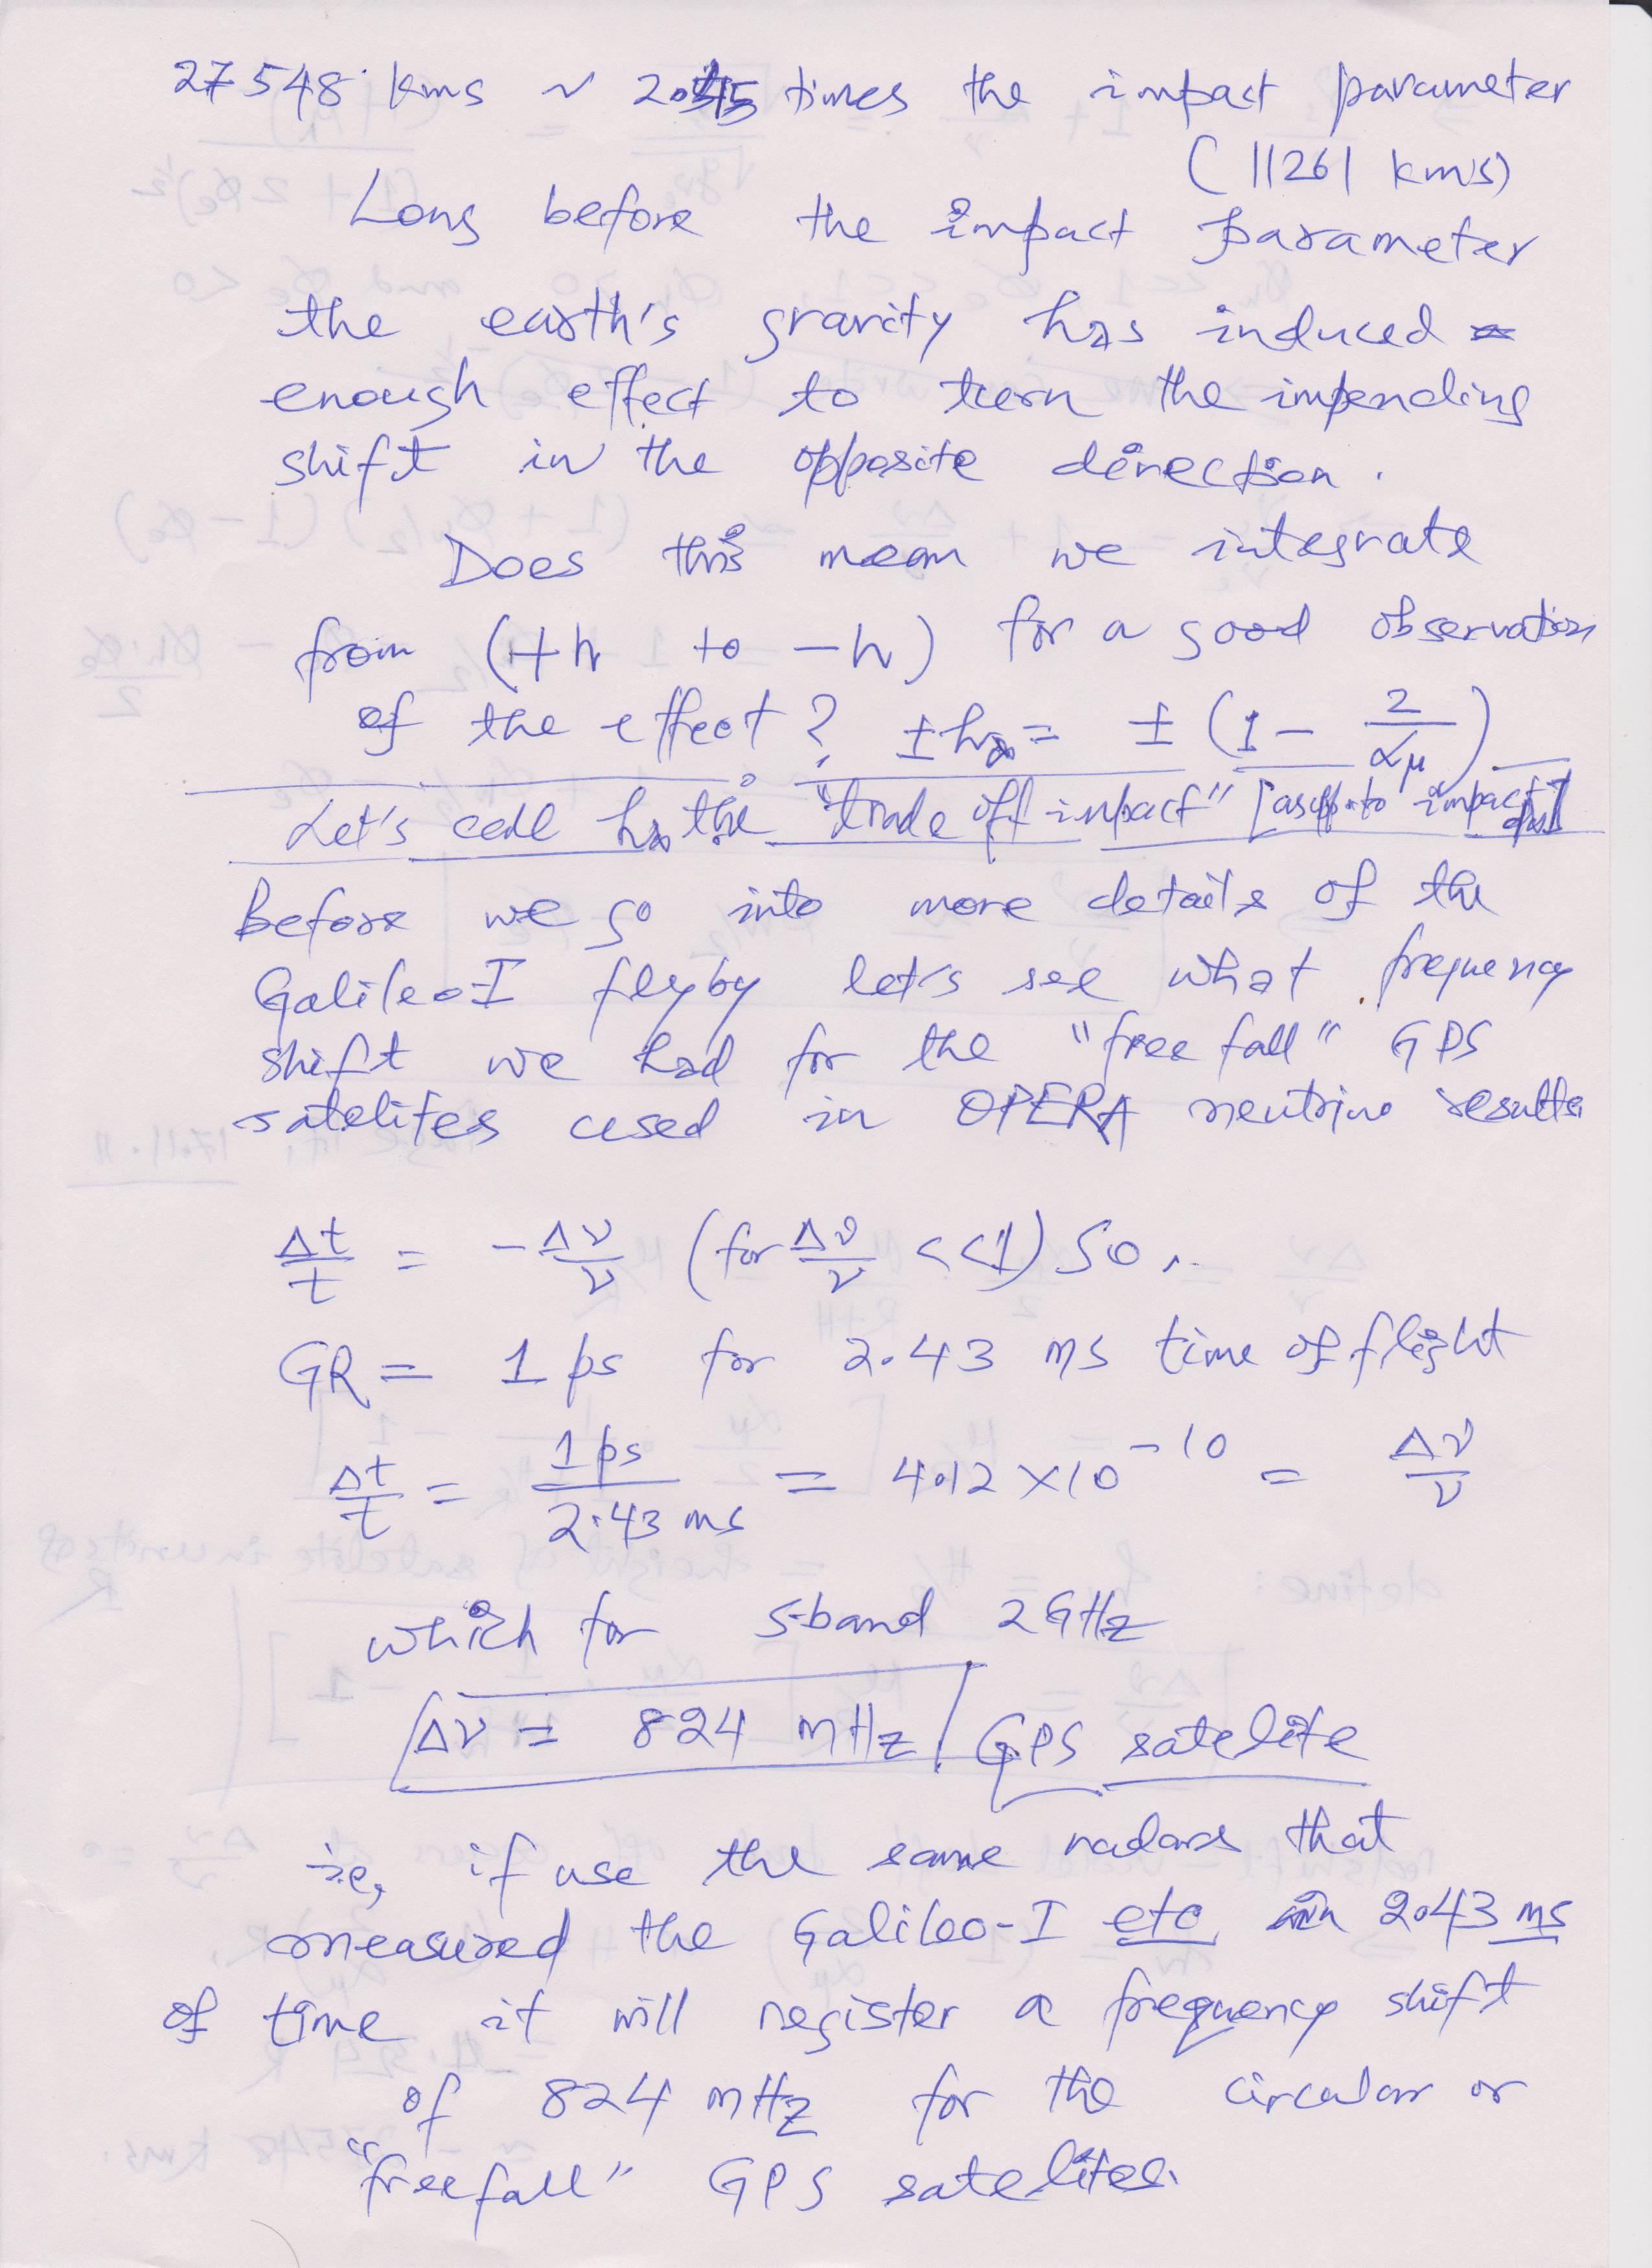 27548 kms ~ 2.45 times the impact parameter
(11261 kms)
Long before the impact parameter
the earth's gravity has induced
enough effect to turn the impending
shift in the opposite direction.
Does this mean we integrate
from (+h to -h) for a good observation
of the effect? ±h = ± (1 - 2/αμ)
Let's call h the "trade off impact" [as opp. to impact
Before we go into more details of the
Galileo I flyby let's see what frequency
shift we had for the "free fall" GPS
satelites used in OPERA neutrino results
Δt/t = -Δν/ν (for Δν/ν <<1) So,
GR = 1 ps for 2.43 ms time of flight
Δt/t = 1 ps/2.43 ms = 4.12 × 10^-10 = Δν/ν
which for S-band 2 GHz
Δν = 824 mHz GPS satelite
i.e, if use the same radars that
measured the Galileo-I etc in 2.43 ms
of time it will register a frequency shift
of 824 mHz for the circular or
"free fall" GPS satelites.